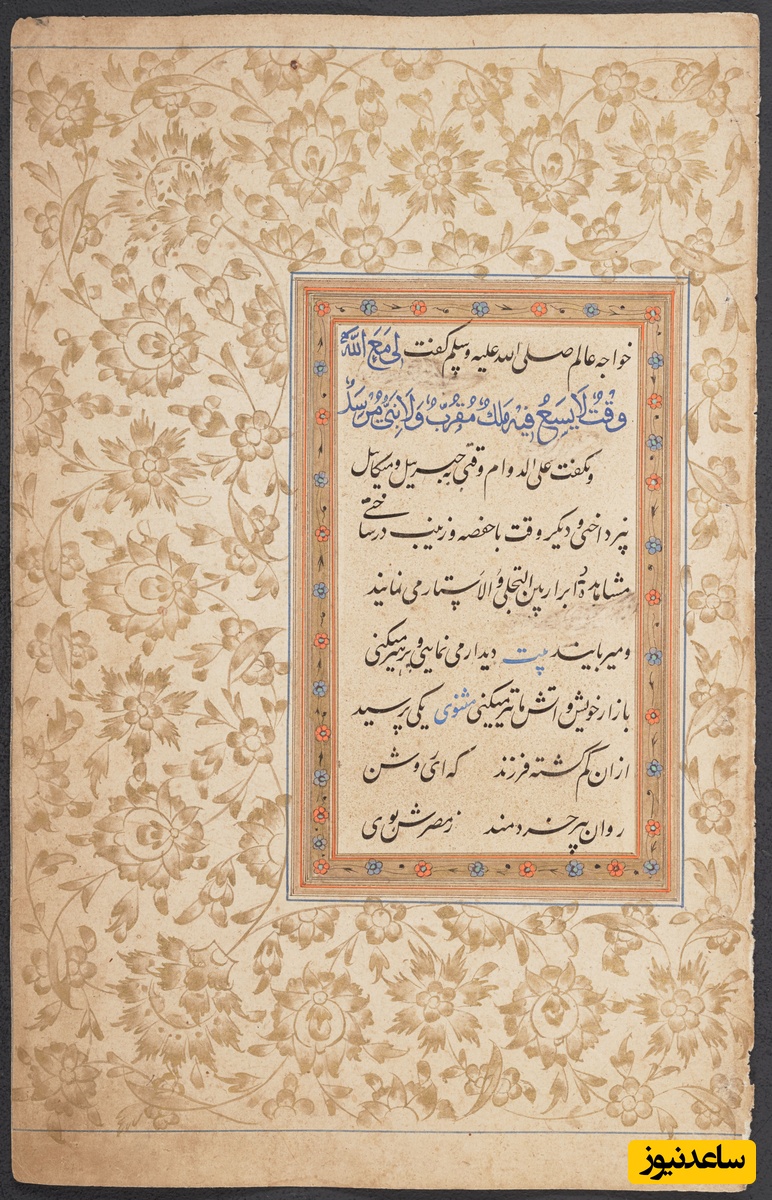 خواجه عالم صلی الله علیه وسلم گفت لِی مَعَ اللّٰهِ
وَقْتٌ لَا یَسَعُ فِیهِ مَلَكٌ مُقَرَّبٌ وَلَا نَبِیٌّ مُرْسَلٌ
و نگفت علی الدوام وقتی به جبریل و میکائیل
نپرداختی و دیگر وقت با حفصه و زینب درساختی
مشاهدة الابرار بین التجلی و الاستتار می نمایند
و میربایند بیت دیدار می نمایی و پرهیز میکنی
بازار خویش و آتش ما تیز میکنی مثنوی یکی پرسید
ازان گم گشته فرزند که ای روشن
روان پیر خردمند زمصرش بوی
ساعدنیوز